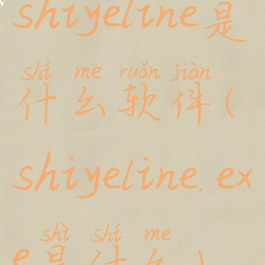 shiyeline是
shí me ruǎn jiàn
什么软件(
shiyeline.ex
shì shí me
e是什么)